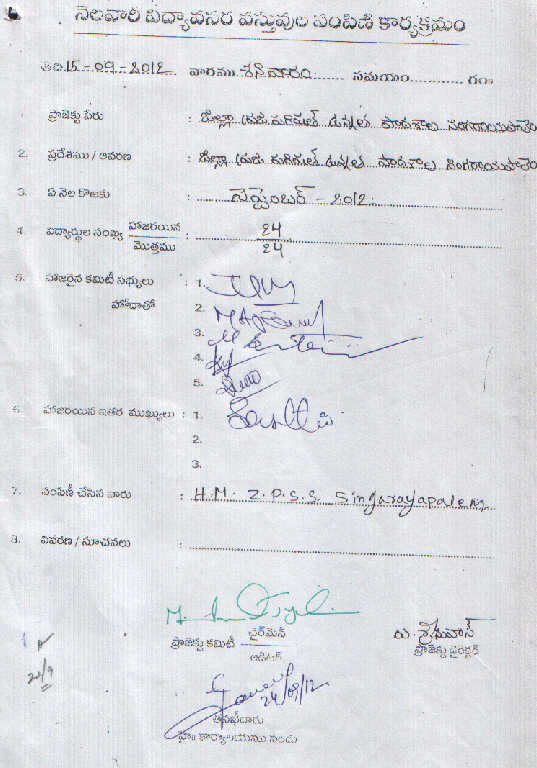 నెలవారీ విద్యావసర వస్తువుల పంపిణీ కార్యక్రమం
తేది: 15-09-2012 వారము శనివారం సమయం గం॥
ప్రాజెక్టు పేరు : జిల్లా పరిషత్ ఉన్నత పాఠశాల సింగరాయపాలెం
2. ప్రదేశము / ఆవరణ : జిల్లా పరిషత్ ఉన్నత పాఠశాల సింగరాయపాలెం
3. ఏ నెల కొఱకు : సెప్టెంబర్ - 2012
4. విద్యార్థుల సంఖ్య హాజరయిన / మొత్తము : 24 / 24
5. హాజరైన కమిటీ సభ్యులు : 1.
హోదాతో 2.
3.
4.
5.
6. హాజరయిన ఇతర ముఖ్యులు : 1.
2.
3.
7. పంపిణీ చేసిన వారు : H.M. Z.P.S.S. Singarayapalem
8. వివరణ / సూచనలు :
ప్రాజెక్టు కమిటీ ఛైర్మెన్
ఆడిటర్
శ్రీనివాస్
ప్రాజెక్టు డైరెక్టర్
24/09/12
24/9